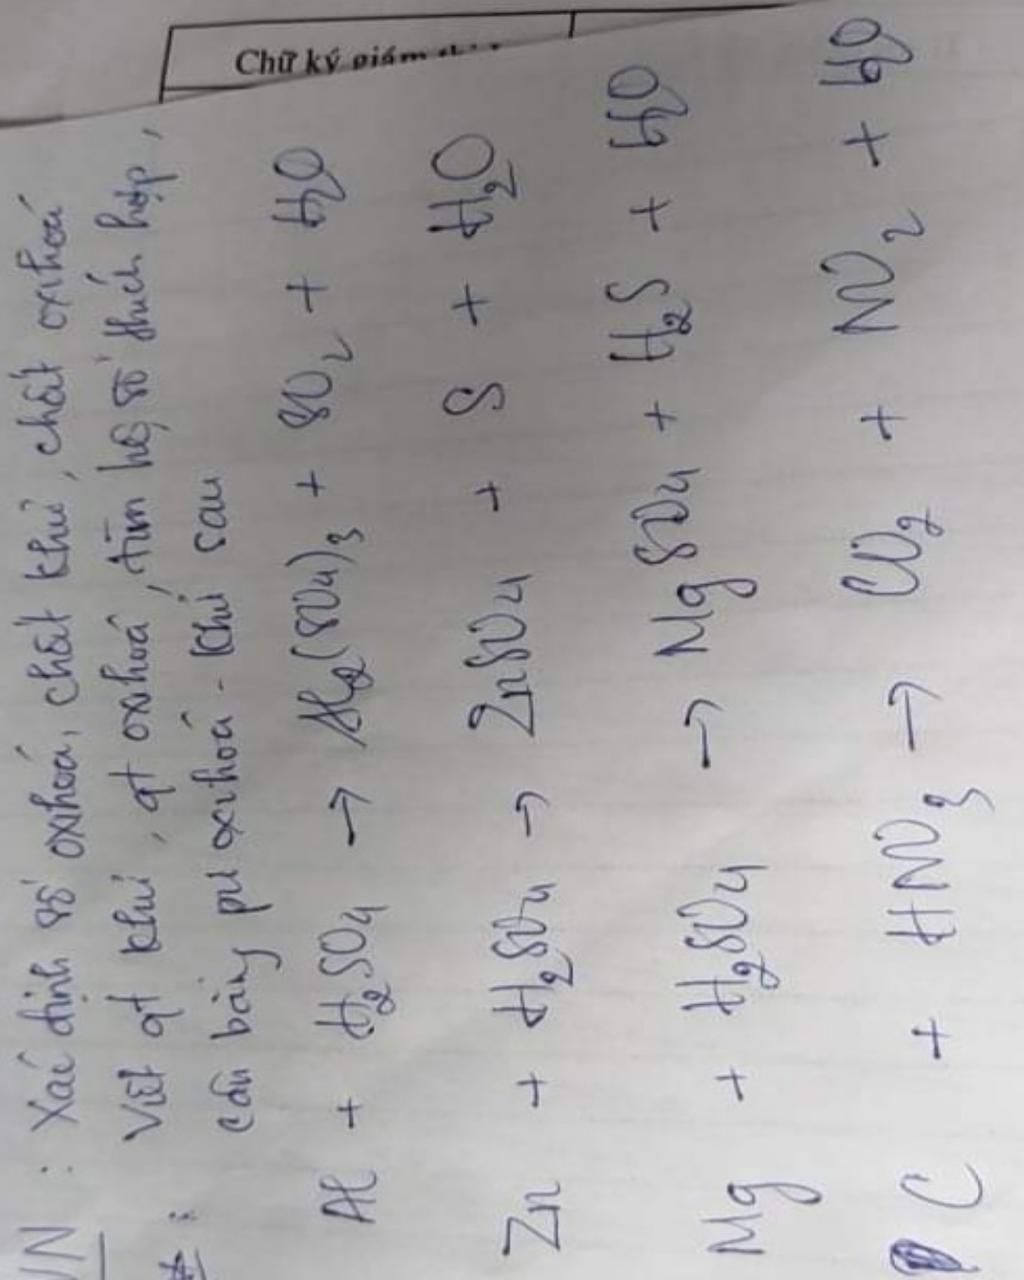 Chữ ký giám
VN : Xác định số oxihoá, chất khử, chất oxihoá
Viết qt khử, qt oxihoá, tìm hệ số thích hợp,
cân bằng pư oxihoá - khử sau
Al + H₂SO₄ → Al₂(SO₄)₃ + SO₂ + H₂O
Zn + H₂SO₄ → ZnSO₄ + S + H₂O
Mg + H₂SO₄ → MgSO₄ + H₂S + H₂O
C + HNO₃ → CO₂ + NO₂ + H₂O